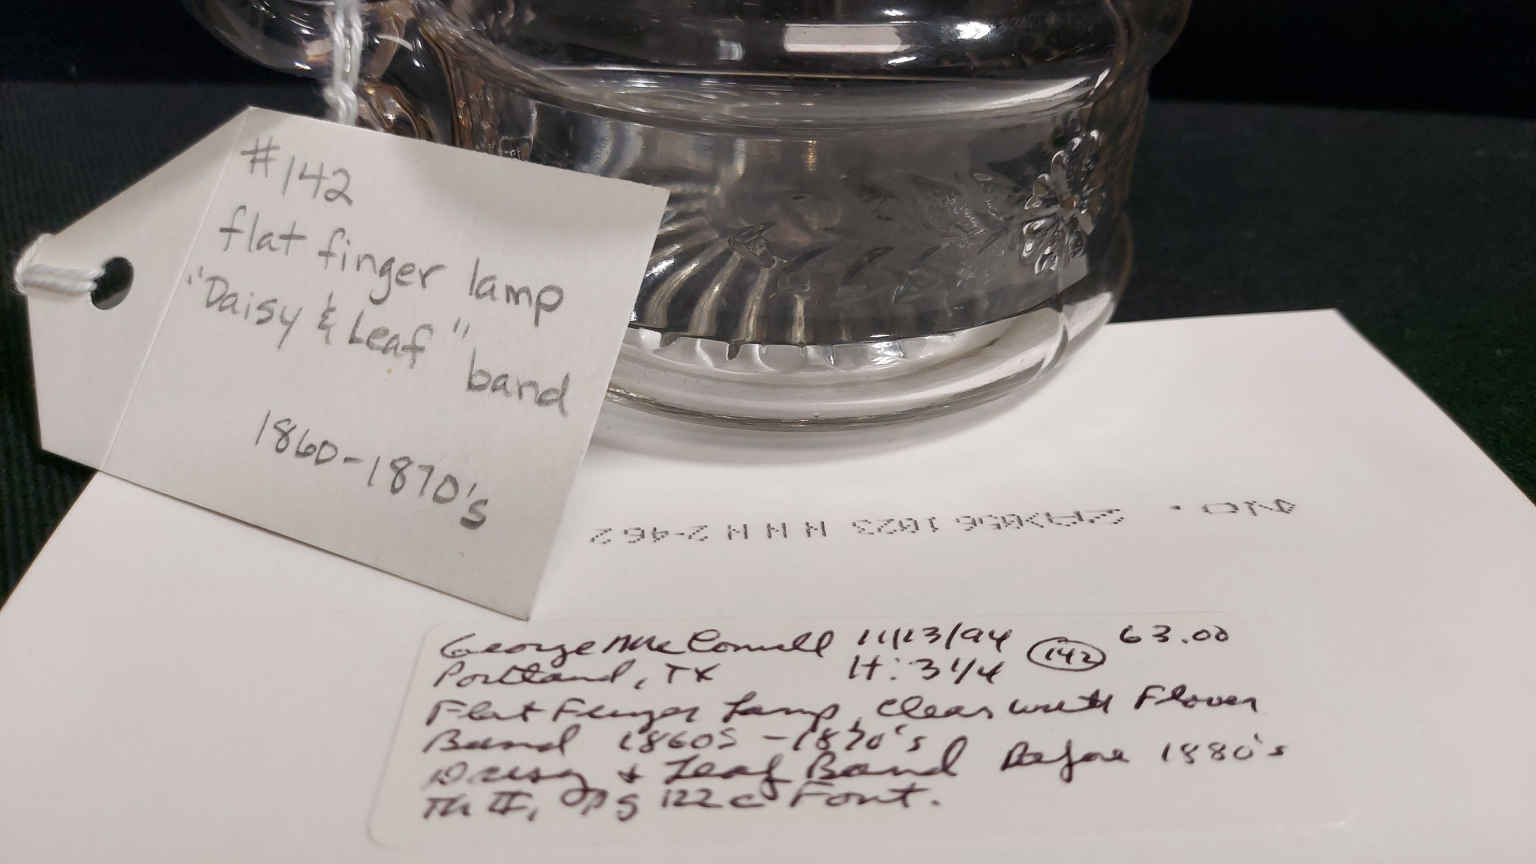 #142
flat finger lamp
"Daisy & Leaf" band
1860-1870's
2-462 H H H 1023
George McConnell 11/13/94 142 63.00
Portland, TX Ht: 3 1/4
Flat Finger Lamp, Clear with Flower
Band 1860s - 1870's
Daisy & Leaf Band Before 1880's
Th II, Pg 122 c Font.